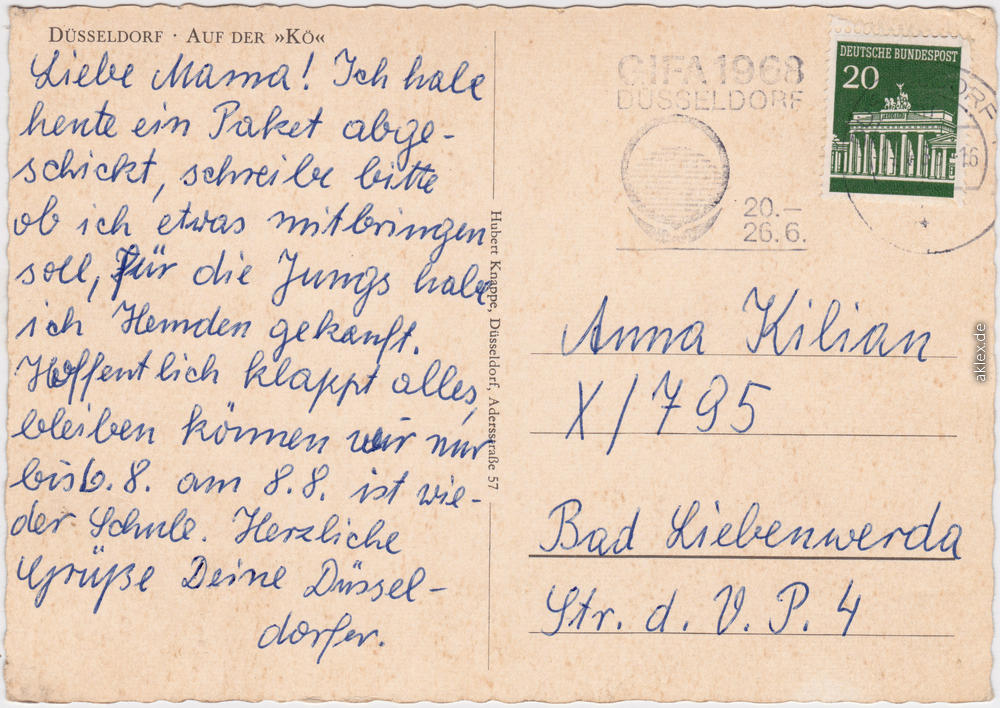 DÜSSELDORF · AUF DER »KÖ«
Liebe Mama! Ich habe
heute ein Paket abge-
schickt, schreibe bitte
ob ich etwas mitbringen
soll, Für die Jungs habe
ich Hemden gekauft.
Hoffentlich klappt alles,
bleiben können wir nur
bis 6.8. am 8.8. ist wie-
der Schule. Herzliche
Grüße Deine Düssel-
dorfer.
Hubert Knappe, Düsseldorf, Adersstraße 57
GIFA 1968
DÜSSELDORF
20.–
26.6.
DEUTSCHE BUNDESPOST
20
DORF
-16
Anna Kilian
X/795
Bad Liebenwerda
Str. d. V. P. 4
aklex.de